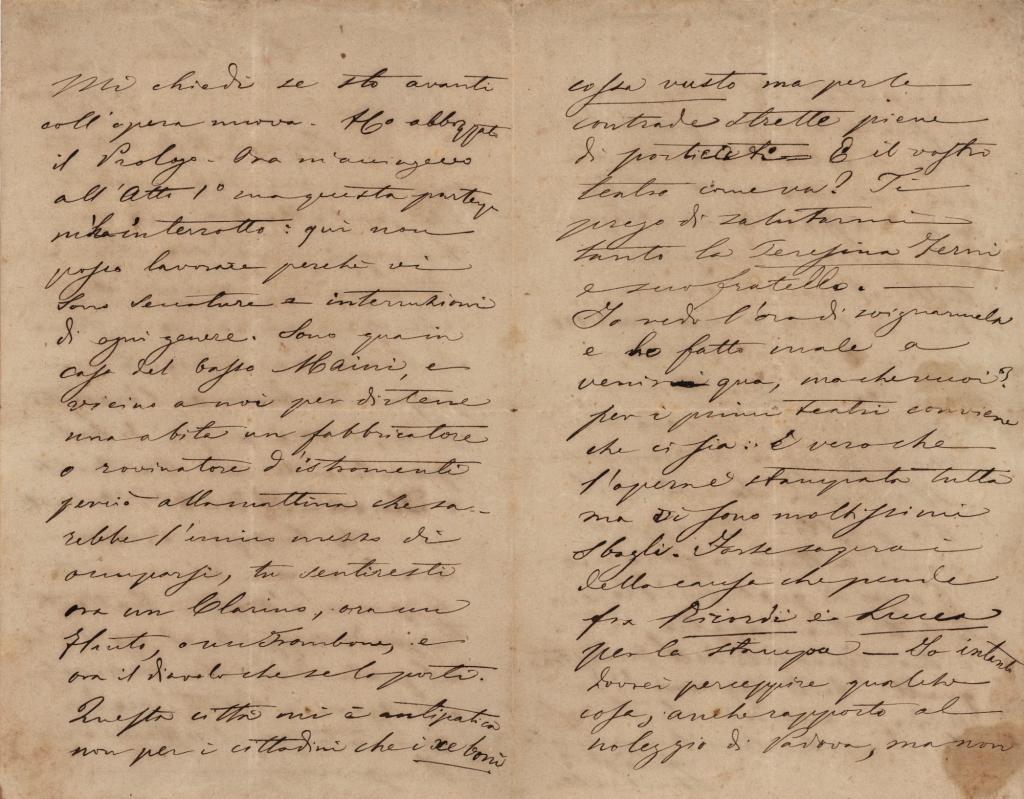 Mi chiedi se sto avanti
coll'opera nuova. Ho abbozzato
il Prologo. Ora m'accingevo
all'Atto 1º ma questa partenza
m'ha interrotto: quì non
posso lavorare perchè vi
sono seccature e interruzioni
di ogni genere. Sono qua in
casa del basso Maini, e
vicino a noi per distene
una abita un fabbricatore
o rovinatore d'istromenti
perciò alla mattina che sa-
rebbe l'unico mezzo di
occuparsi, tu sentiresti
ora un Clarino, ora un
Flauto, o un Trombone, e
ora il diavolo che se lo porti.
Questa città mi è antipatica
non per i cittadini che i xe boni
cossa vusto ma per le
contrade strette piene
di porticati = E il vostro
teatro come va? Ti
prego di salutarmi
tanto la Teresina Ferni
e suo fratello. —
Io vedo l'ora di svignarmela
e ho fatto male a
venire qua, ma che vuoi?
per i primi teatri conviene
che ci sia: è vero che
l'opera è stampata tutta
ma vi sono moltissimi
sbagli. Forse saprai
della causa che pende
fra Ricordi e Lucca
per la stampa — Io intanto
dovrei percepire qualche
cosa, anche rapporto al
noleggio di Padova, ma non